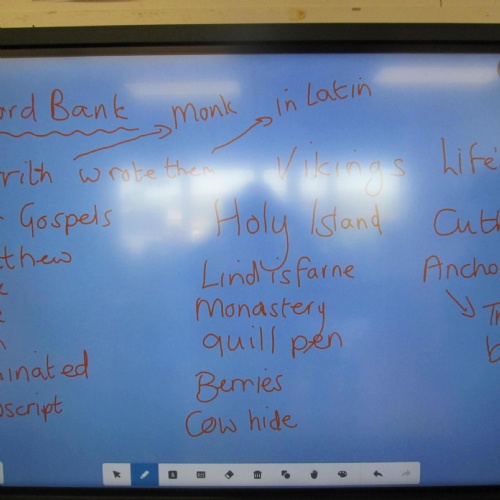 ord Bank monk in Latin
rith wrote them Vikings Life
Gospels Holy Island Cuth
tthew Lindisfarne Ancho
Monastery
quill pen
inated Berries
script Cow hide